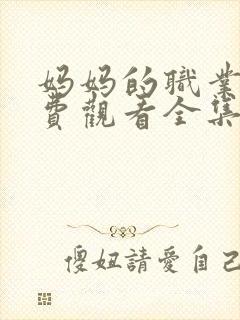 妈妈的職業
費觀看全集
傻妞請愛自己